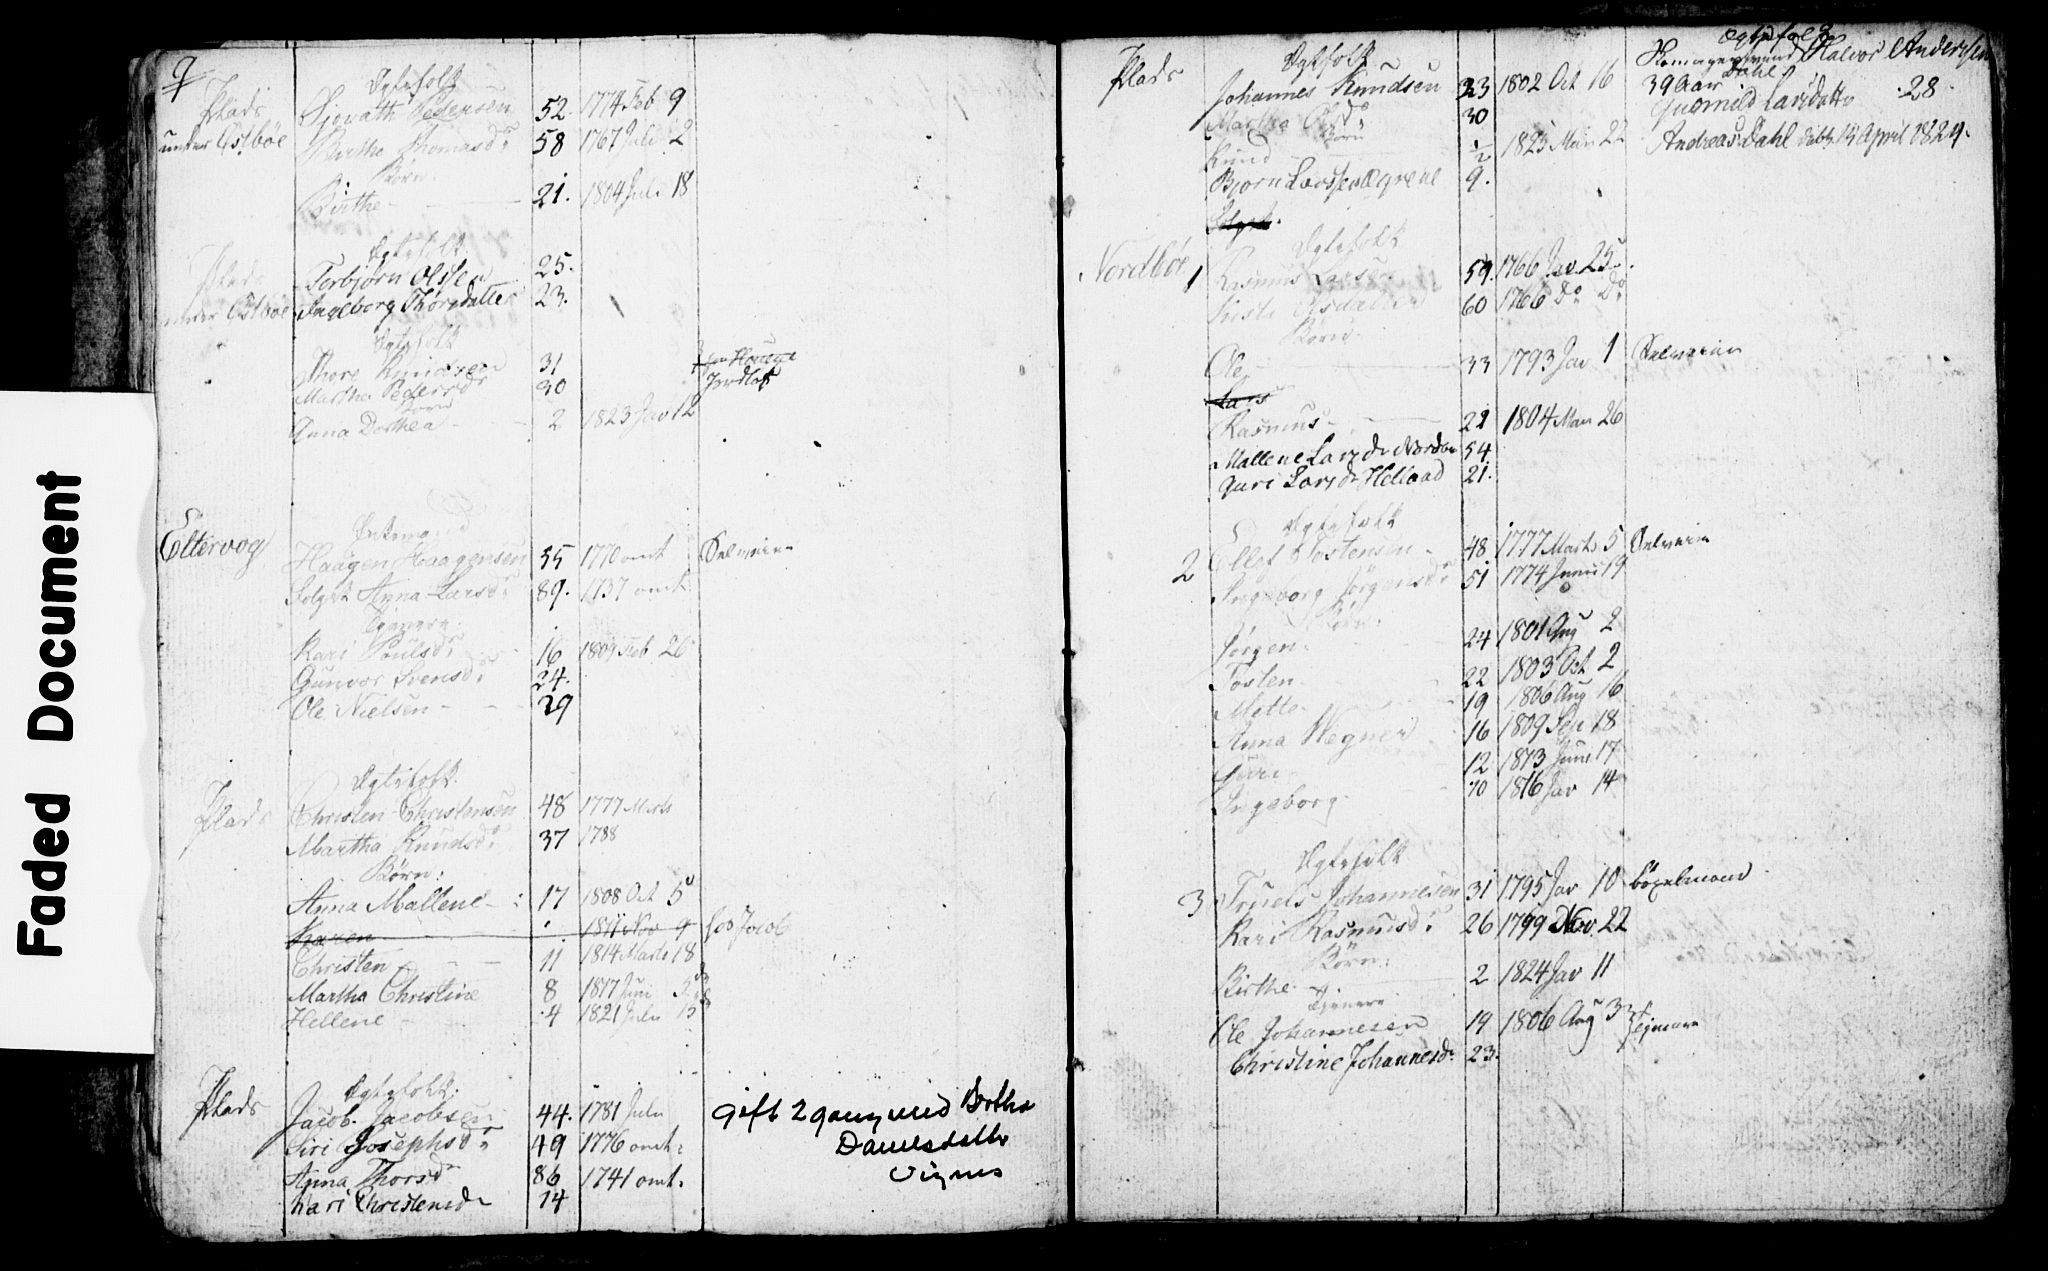 Faded Document
9
Plads under Ostbøe
Egtefolk
Sjovath Pedersen 52. 1774 Feb 9
Birthe Thomasd: 58 1767 Juli 2
Børn
Birthe 21. 1804 Juli 18
Plads under Ostbøe
Egtefolk
Torbjørn Olssen 25.
Ingeborg Thorsdatter 23.
Egtefolk
Thore Knudsen 31
Martha Pedersd: 30
Børn
Anna Dorthea 2 1823 Jav 12
Eltervog
Enkemand
Haagen Haagensen 55 1770 omt Selveier
Anna Larsd: 89. 1737 omt
Tjenere:
Kari Poulsd: 16 1809 Feb 26
Gunvor Svensd: 24.
Ole Nielsen 29
Plads
Egtefolk.
Christen Christensen 48 1777 Marts
Martha Knudsd: 37 1788
Børn:
Anna Mallene 17 1808 Oct 5
Karen 1811 Nov 9 hos Jacob
Christen 11 1814 Marts 18
Martha Christine 8 1817 Juni
Hellene 4 1821 Julii 15
Plads
Egtefolk:
Jacob Jacobsen 44. 1781 Julii gift 2 gang med Bertha
Siri Josephsd: 49 1776 omt: Danielsdatter
Anna Thorsd 86 1741 omt. Vignes
Kari Christensd 14
Plads
Egtefolk
Johannes Knudsen 23 1802 Oct 16
Martha 30
Børn
Knud ½ 1825 Man 22
Bjørn Larssen 9.
Egtefolk
Halvor Andersen
Dahl
39 Aar
Gunnild Larsdatter 28
Andreas Dahl døbt 14 April 1829.
Nordbøe 1
Egtefolk
Rasmus Larsen 59. 1766 Jav 25
Siri Olsdatter 60 1766 Do Do
Børn:
Ole 33 1793 Jav 1 Selveier
Lars
Rasmus 21 1804 Man 26
Mallene Larsd 54.
Guri Larsd Helland 21.
2
Egtefolk
Ellef Tostensen 48 1777 Marts 5 Selveier
Ingeborg Jørgensd: 51 1774 Junii 19
Børn:
Jørgen 24 1801 Aug 2
Tosten 22 1803 Oct 2
Mette 19 1806 Aug 16
Anna Wegner 16 1809 Sep 18
Guri 12 1813 Juni 17
Ingeborg 10 1816 Jav 14
3
Egtefolk
Troels Johannesen 31 1795 Jav 10 bøxelmand
Kari Rasmusd: 26 1799 Nov 22
Børn:
Birthe 2 1824 Jav 11
Tjenere
Ole Johannesen 19 1806 Aug 3
Christine Johannesd 23.